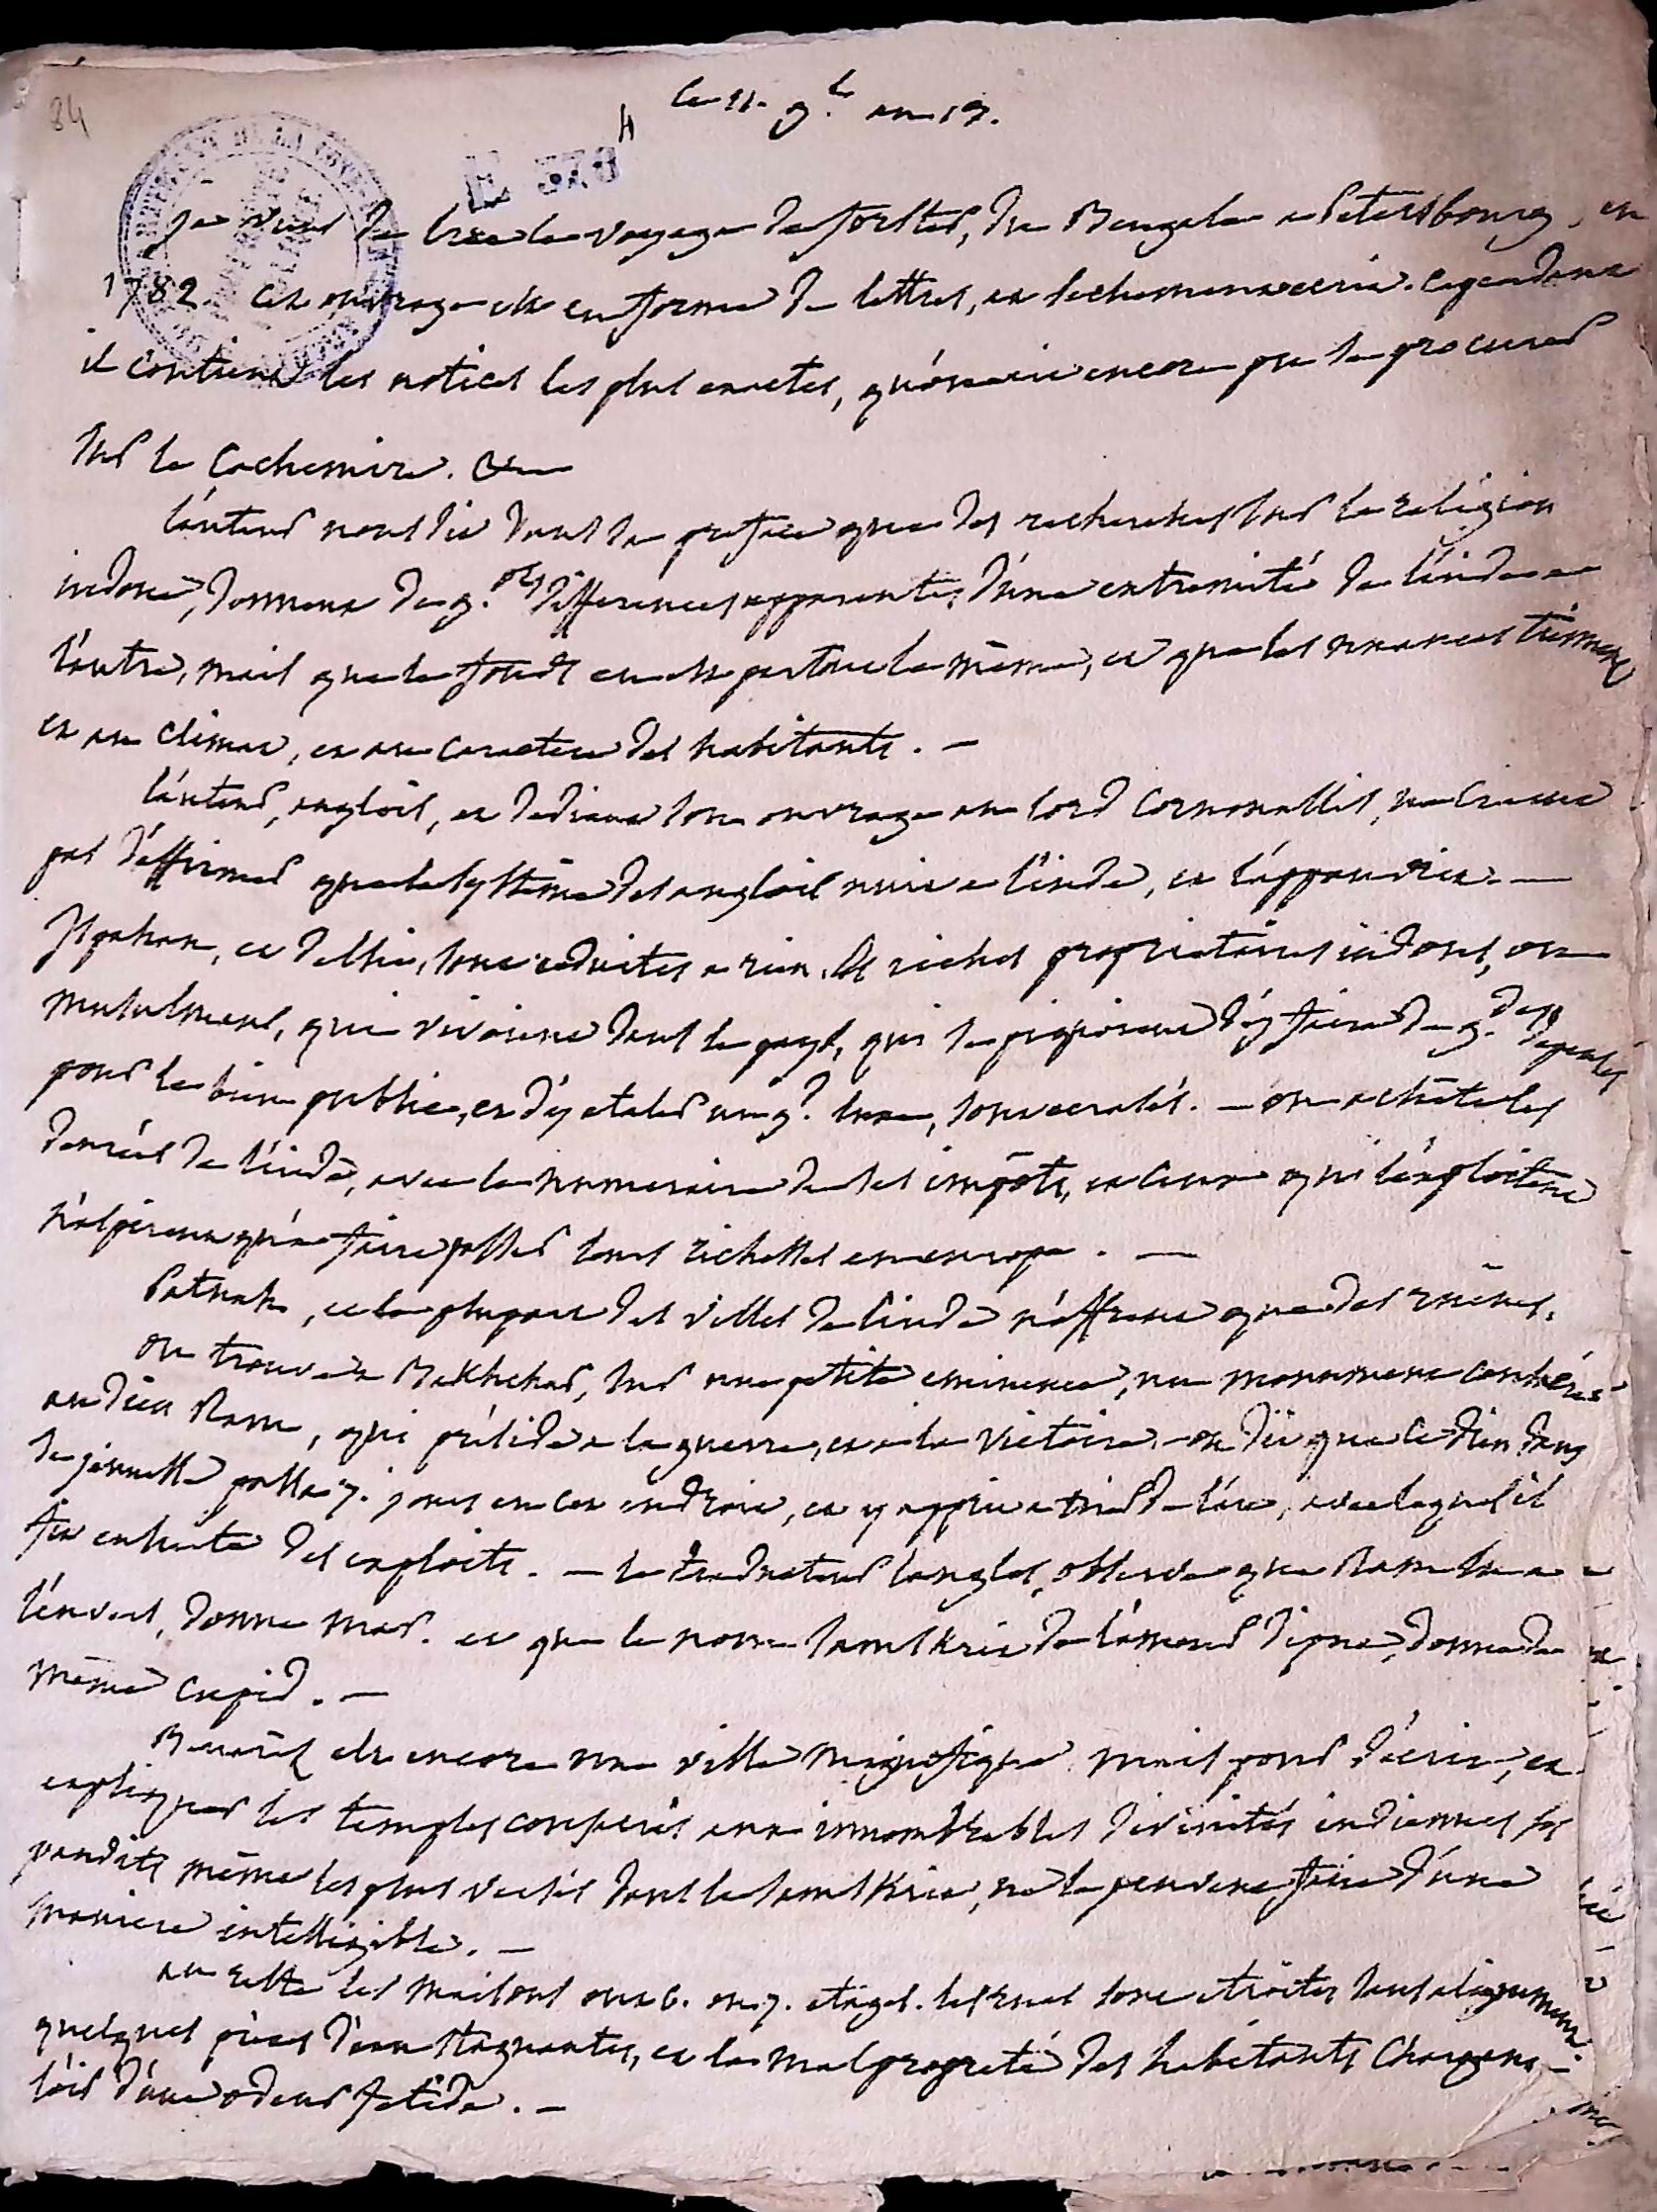 84
le 11. 9.b an 13.
E 378
je viens de lire le voyage de forster, du Bengale a Petersbourg, en
1782. cet ouvrage est en forme de lettres, et sechement ecrit. cependant
il contient les notices les plus exactes, qu'on ait encore pu se procurer
sur le Cachemire.
l'auteur nous dit dans sa preface que des recherches sur la religion
indoue, donnent de g.des differences apparentes, d'une extremité de l'inde a
l'autre, mais que le fonds en est partout le même, et que les nuances tiennent
et au climat, et au caractere des habitants. —
l'auteur, anglois, et dediant son ouvrage au lord Cornwallis, ne craint
pas d'affirmer que le systême des anglois nuit a l'inde, et l'appauvrit. —
Ispahan, et Delhi, sont reduites a rien. les riches proprietaires indous, ou
musulmans, qui vivoient dans le pays, qui se piquoient d'y faire de g.des depenses
pour le bien public, et d'y etaler un g.d luxe, sont ecrasés. — on achête les
denrées de l'inde, avec le numeraire de ses impôts, et ceux qui l'exploitent
n'aspirent qu'a faire passer leurs richesses en europe. —
Patnah, et la plupart des villes de l'inde n'offrent que des ruines.
on trouve a Bakhchar, sur une petite eminence, un monument consacré
au dieu Ram, qui préside a la guerre, et a la victoire. on dit que ce dieu dans
sa jeunesse passa 7. jours en cet endroit, et y apprit a tirer de l'arc, avec lequel il
fit ensuite des exploits. — le traducteur langlès, observe que Ram lu a
l'envers, donne mar. et que le nom samskrit de l'amour Dipuc, donne de
même cupid. —
Benarès est encore une ville magnifique mais pour décrire, et
expliquer les temples consacrés aux innombrables divinités indiennes les
pandits même les plus versés dans le samskrit, ne le peuvent faire d'une
maniere intelligible. —
au reste les maisons ont 6. ou 7. etages. les rues sont etroites sans alignement.
quelques pièces d'eau stagnantes, et la malpropreté des habitants chargent
l'air d'une odeur fetide. —